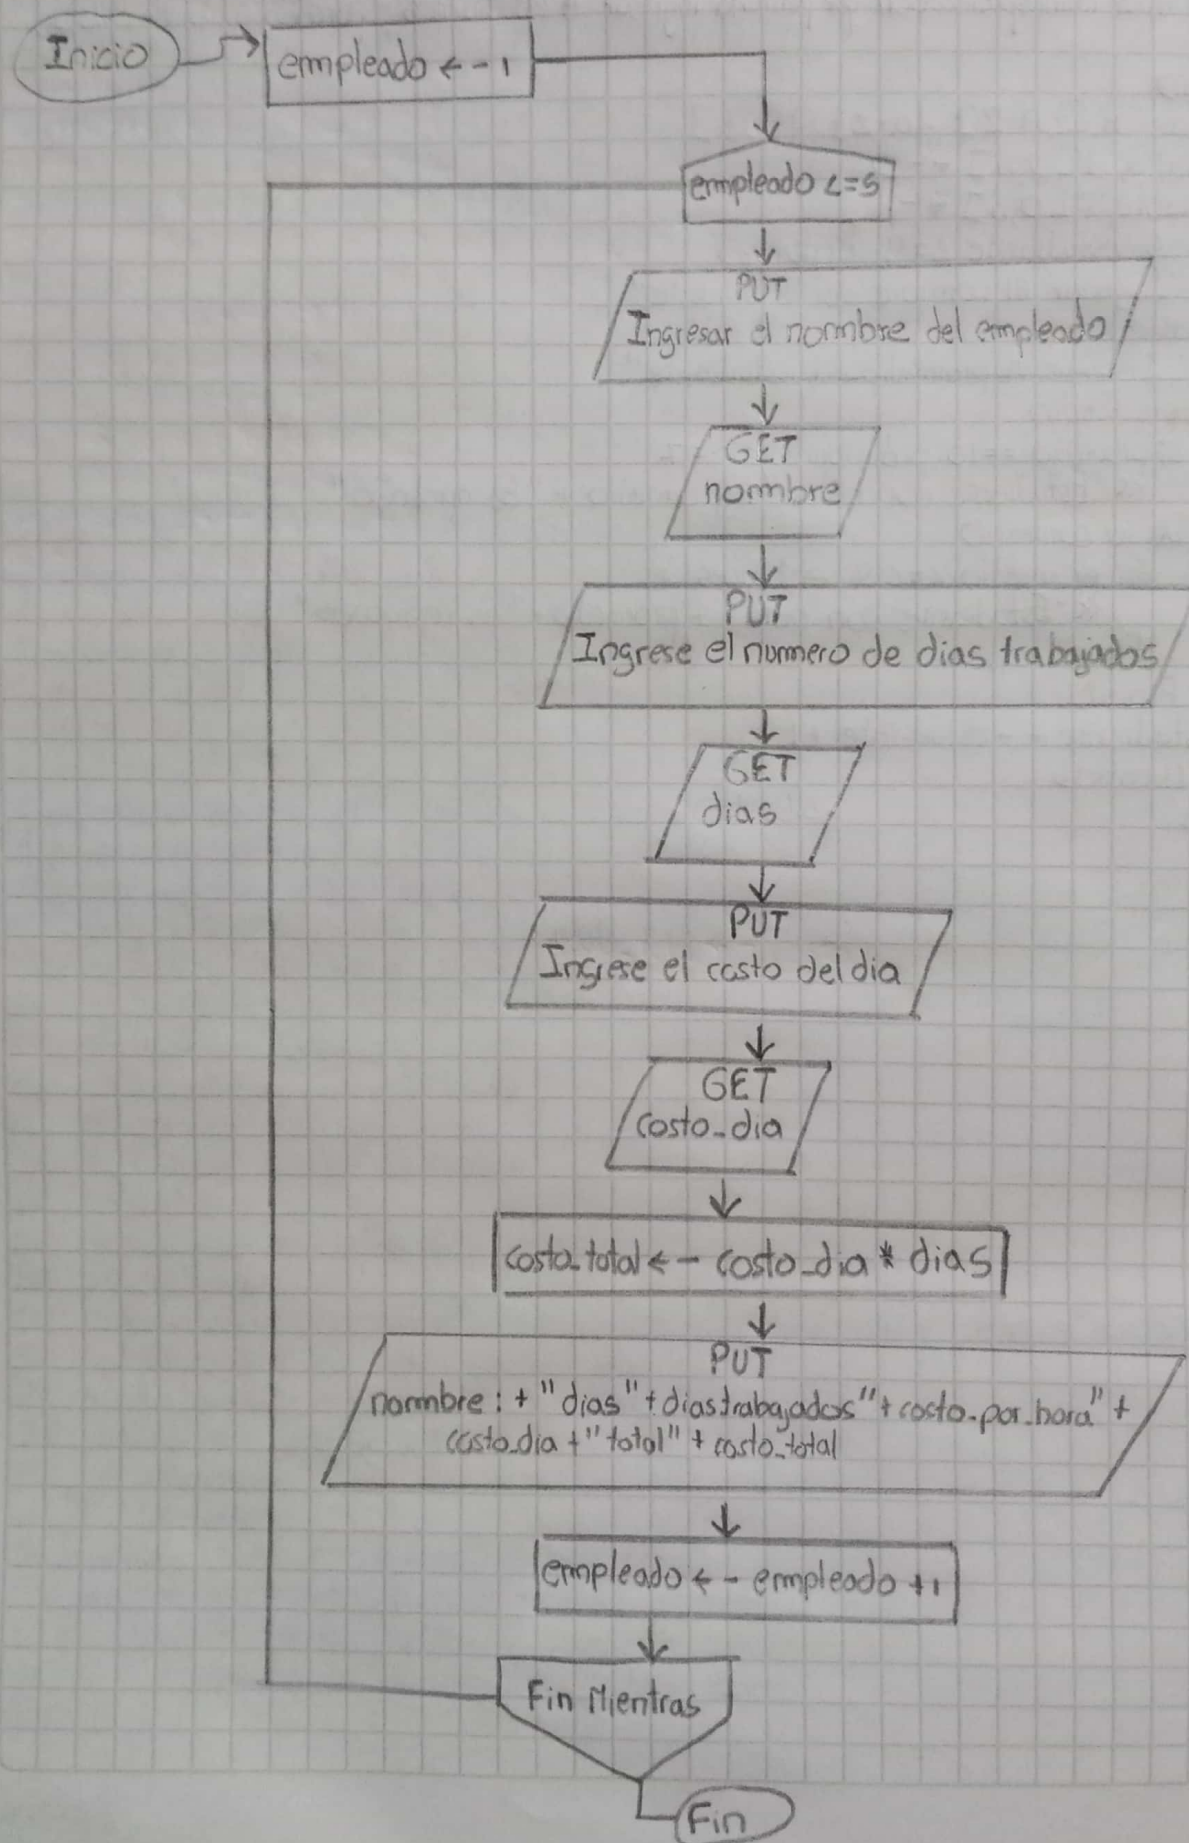 Inicio
empleado <- 1
empleado <=5
PUT
Ingresar el nombre del empleado
GET
nombre
PUT
Ingrese el numero de dias trabajados
GET
dias
PUT
Ingrese el costo del dia
GET
costo_dia
costo_total <- costo_dia * dias
PUT
nombre: + "dias" + dias trabajados" + costo_por_hora" +
costo_dia + "total" + costo_total
empleado <- empleado +1
Fin Mientras
Fin